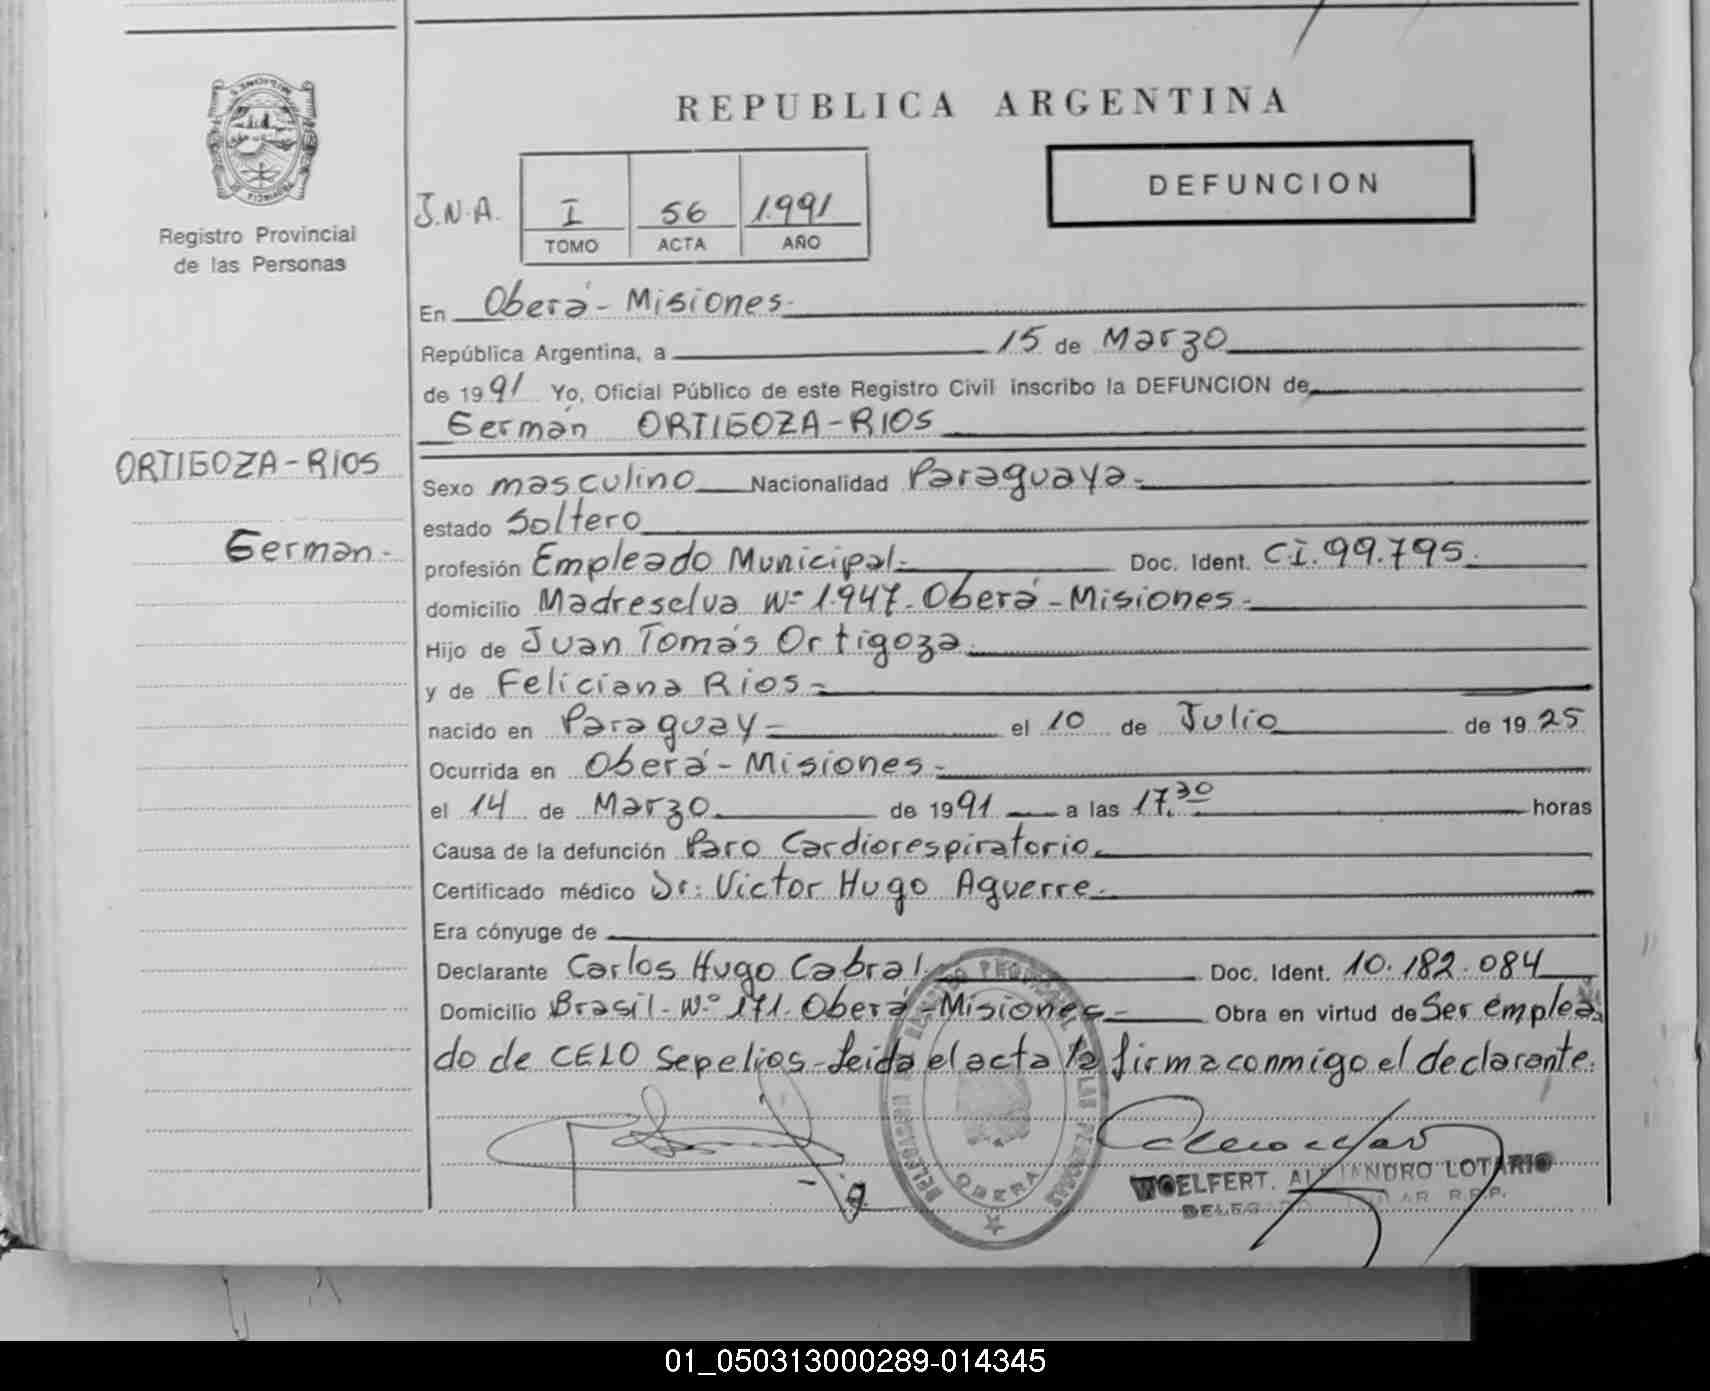 REPUBLICA ARGENTINA
DEFUNCION
Registro Provincial
de las Personas
J.N.A.
I 56 1.991
TOMO ACTA AÑO
En Oberá - Misiones.
República Argentina, a 15 de Marzo
de 1991 Yo, Oficial Público de este Registro Civil inscribo la DEFUNCION de
Germán ORTIGOZA-RIOS
ORTIGOZA-RIOS
Germán.-
Sexo masculino Nacionalidad Paraguaya.-
estado Soltero
profesión Empleado Municipal.- Doc. Ident. C.I. 99.795.
domicilio Madreselva Nº 1.947. Oberá - Misiones.-
Hijo de Juan Tomás Ortigoza.
y de Feliciana Rios.-
nacido en Paraguay.- el 10 de Julio de 1925
Ocurrida en Oberá - Misiones.-
el 14 de Marzo de 1991 a las 17.30 horas
Causa de la defunción Paro Cardiorespiratorio.
Certificado médico Dr: Victor Hugo Aguerre.
Era cónyuge de
Declarante Carlos Hugo Cabral. Doc. Ident. 10.182.084
Domicilio Brasil - Nº 171. Oberá - Misiones.- Obra en virtud de Ser emplea
do de CELO Sepelios - Leida el acta la firma conmigo el declarante.
OBERA
WOELFERT. ALEJANDRO LOTARIO
01_050313000289-014345